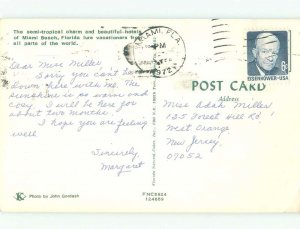 The semi-tropical charm and beautiful hotels
of Miami Beach, Florida lure vacationers from
all parts of the world.
MIAMI, FLA.
PM
1972
6c
EISENHOWER·USA
POST CARD
Address
Dear Miss Miller,
Sorry you can't be
down here with me. The
sunshine is so warm and
cosy. I will be here for
about two months.
I hope you are feeling
well
Sincerely,
Margaret
Miss Adah Miller
125 Forest Hill Rd
West Orange
New Jersey,
07052
K
Photo by John Gordash
FNC8424
124669